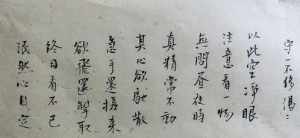 守一不移偈：
以此空淨眼
注意看一物
無問晝夜時
真精常不動
其心欲馳散
急手還攝來
欲飛還掣取
終日看不已
泯然心自定